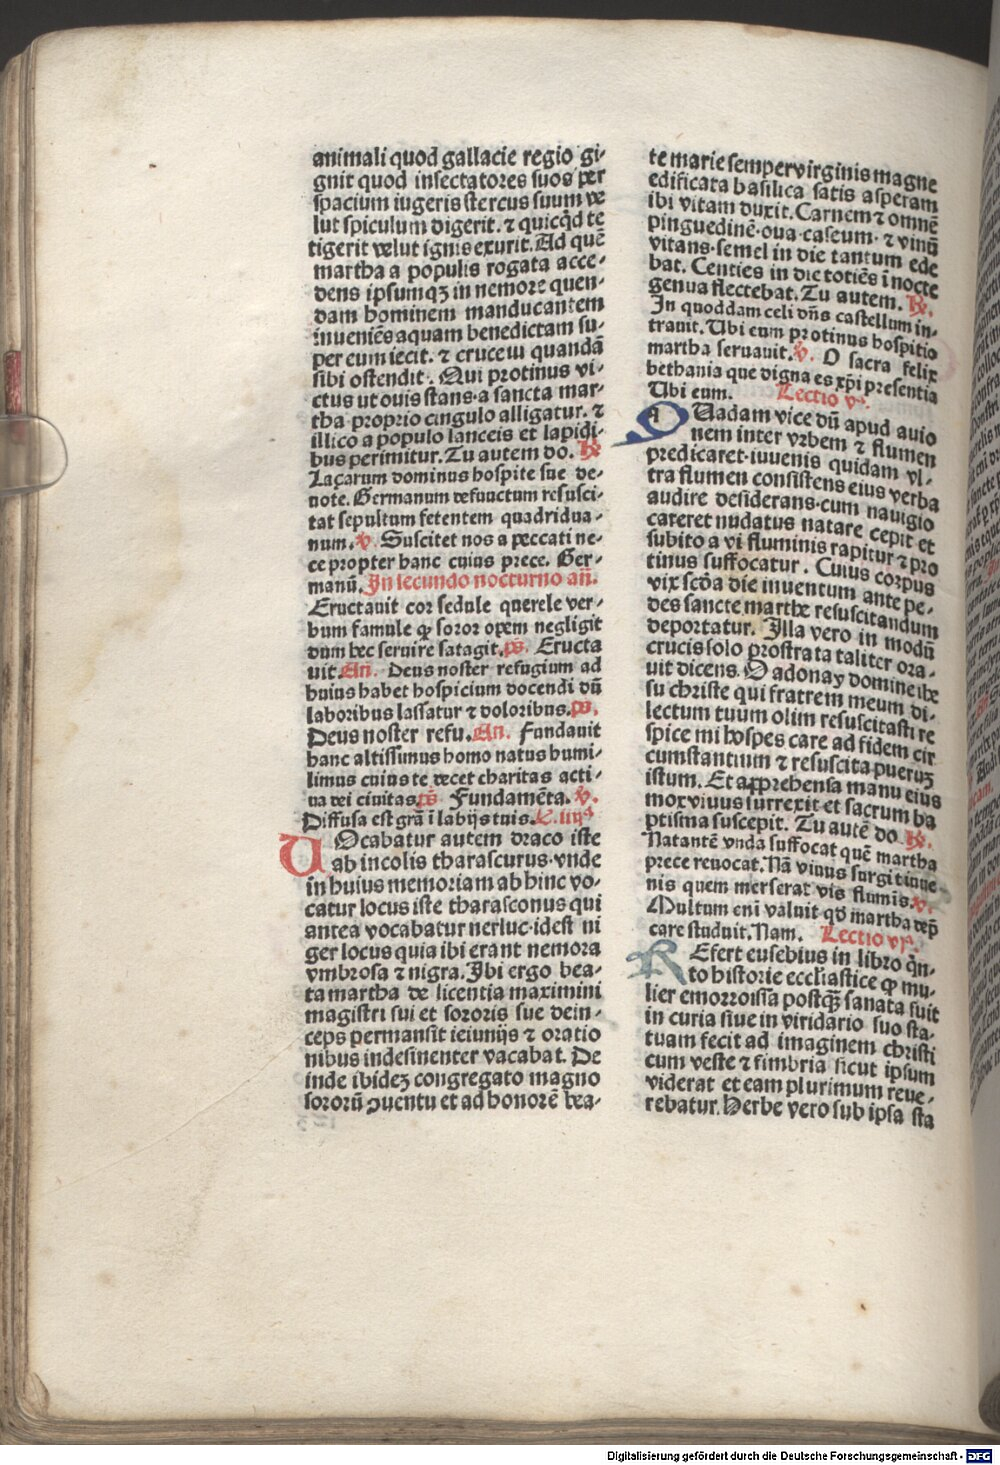 animali quod gallacie regio gi-
gnit quod insectatores suos per
spacium iugeris stercus suum ve
lut spiculum digerit. ⁊ quicq̇d te
tigerit velut ignis exurit. Ad quē
martha a populis rogata acce-
dens ipsumqꝫ in nemore quen-
dam hominem manducantem
inueniēs aquam benedictam su-
per eum iecit. ⁊ crucem quandā
sibi ostendit. Qui protinus vi-
ctus ut ouis stans a sancta mar-
tha proprio cingulo alligatur. ⁊
illico a populo lanceis et lapidi-
bus perimitur. Tu autem do. ℟
Lazarum dominus hospite sue de-
uote. Germanum defunctum resusci-
tat sepultum fetentem quadridua-
num. ℣ Suscitet nos a peccati ne-
ce propter hanc cuius prece. Ger-
manū. In secundo nocturno an̄.
Eructauit cor sedule querele ver-
bum famule ꝙ soror opem negligit
dum hec seruire satagit. ps̄. Eructa
uit. An̄. Deus noster refugium ad
huius habet hospicium docendi dū
laboribus lassatur ⁊ doloribus. ps̄.
Deus noster refu. An. Fundauit
hanc altissimus homo natus humi-
limus cuius te decet charitas acti-
ua dei ciuitas. ps̄ Fundamēta. ℣.
Diffusa est grā ī labijs tuis. L. iiij
Uocabatur autem draco iste
ab incolis tharascurus. vnde
in huius memoriam ab hinc vo-
catur locus iste tharasconus qui
antea vocabatur nerluc. idest ni
ger locus quia ibi erant nemora
vmbrosa ⁊ nigra. Ibi ergo bea-
ta martha de licentia maximini
magistri sui et sororis sue dein-
ceps permansit ieiunijs ⁊ oratio
nibus indesinenter vacabat. De
inde ibideꝫ congregato magno
sororū ꝯuentu et ad honorē bea-
te marie semper virginis magne
edificata basilica satis asperam
ibi vitam duxit. Carnem ⁊ omnē
pinguedinē. oua. caseum. ⁊ vinū
vitans. semel in die tantum ede
bat. Centies in die totiēs ī nocte
genua flectebat. Tu autem. ℟.
In quoddam celi dn̄s castellum in-
trauit. Ubi eum protinus hospitio
martha seruauit. ℣. O sacra felix
bethania que digna es xp̄i presentia
Ubi eum. Lectio v.
Quadam vice dū apud auio
nem inter vrbem ⁊ flumen
predicaret. iuuenis quidam vl-
tra flumen consistens eius verba
audire desiderans. cum nauigio
careret nudatus natare cepit et
subito a vi fluminis rapitur ⁊ pro
tinus suffocatur. Cuius corpus
vix scd̄a die inuentum ante pe-
des sancte marthe resuscitandum
deportatur. Illa vero in modū
crucis solo prostrata taliter ora-
uit dicens. O adonay domine ihe
su christe qui fratrem meum di-
lectum tuum olim resuscitasti re
spice mi hospes care ad fidem cir
cumstantium ⁊ resuscita pueruꝫ
istum. Et apprehensa manu eius
mox viuus surrexit et sacrum ba
ptisma suscepit. Tu autē do ℟.
Natantē vnda suffocat quē martha
prece reuocat. Nā viuus surgit iuue
nis quem merserat vis flumis. ℣.
Multum eni valuit qd̄ martha dep̄
care studuit. Nam. Lectio vj.
Refert eusebius in libro q̇n-
to historie eccliastice ꝙ mu-
lier emorroissa postqꝫ sanata fuit
in curia siue in viridario suo sta-
tuam fecit ad imaginem christi
cum veste ⁊ fimbria sicut ipsum
viderat et eam plurimum reue-
rebatur. Herbe vero sub ipsa sta
Digitalisierung gefördert durch die Deutsche Forschungsgemeinschaft - DFG